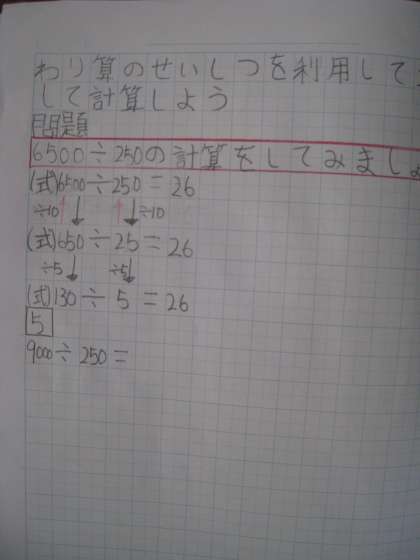 わり算のせいしつを利用して
して計算しよう
問題
6500÷250の計算をしてみましょ
(式)6500÷250=26
÷10 ÷10
(式)650÷25=26
÷5 ÷5
(式)130÷5=26
5
9000÷250=